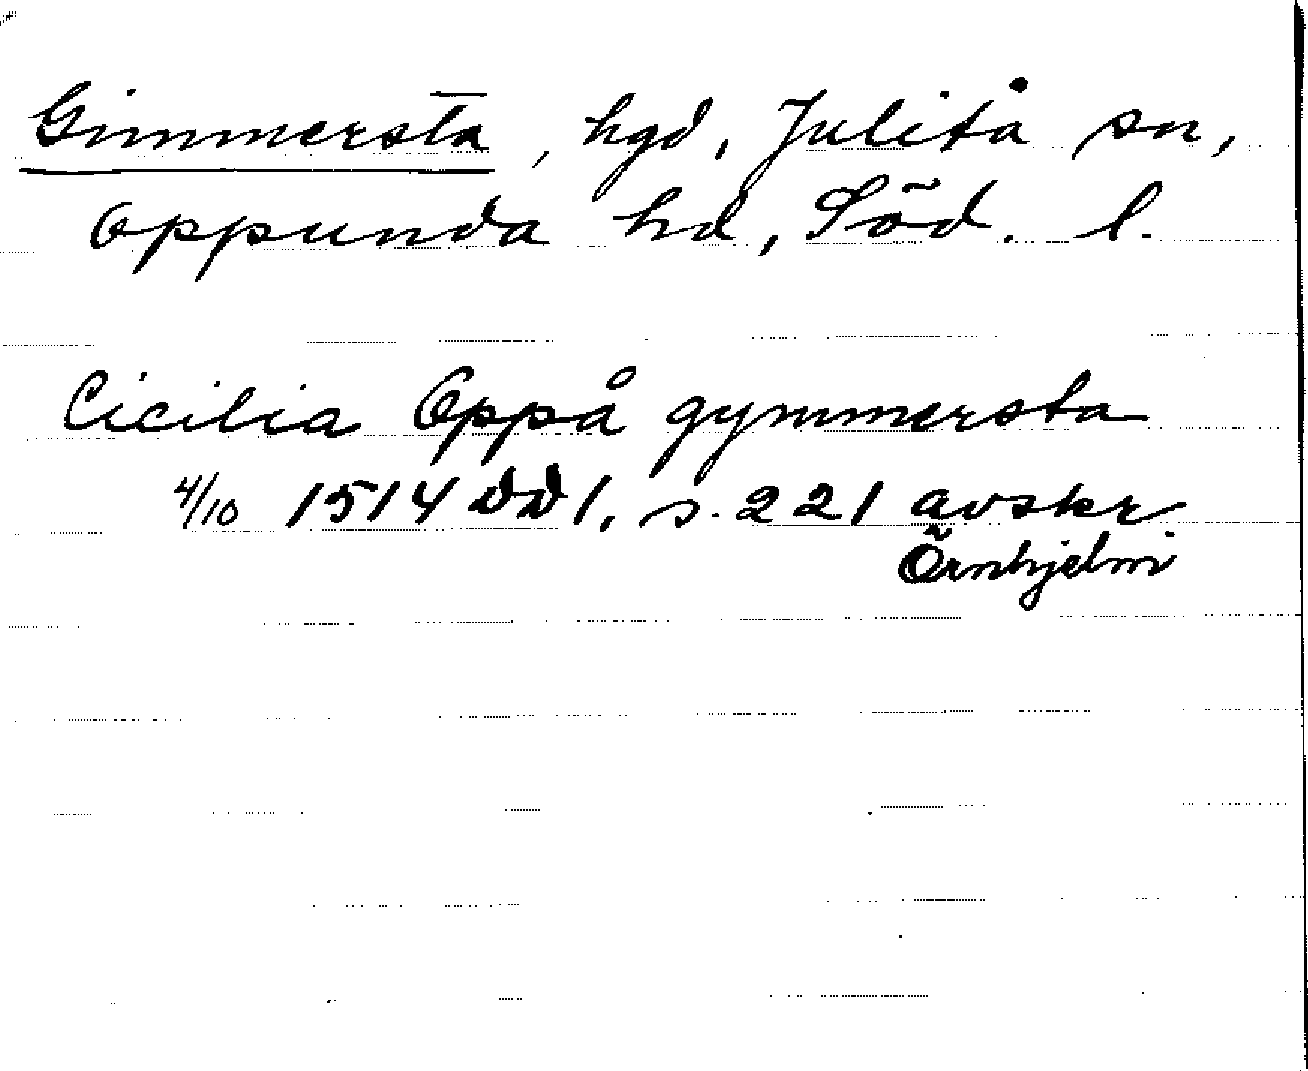 Gimmersta, hgd, Julitå sn,
Oppunda hd, Söd. l.
Cicilia Oppå gymmersta
4/10 1514 DD1, s. 221 avskr
Örnhjelm